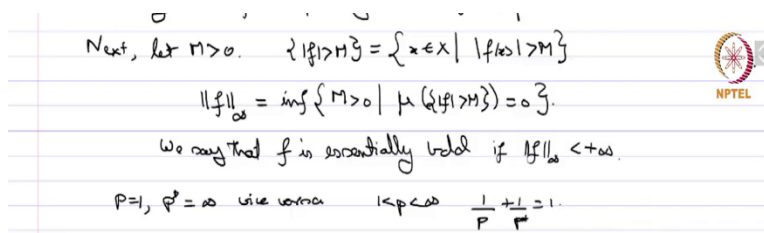 Next, let M>0. {|f|>M} = {x ∈ X | |f(x)|>M}
NPTEL
||f||_∞ = inf {M>0 | μ({|f|>M}) = 0}.
We say that f is essentially bdd if ||f||_∞ < +∞.
p=1, p* = ∞ vice versa 1<p<∞ 1/p + 1/p* = 1.